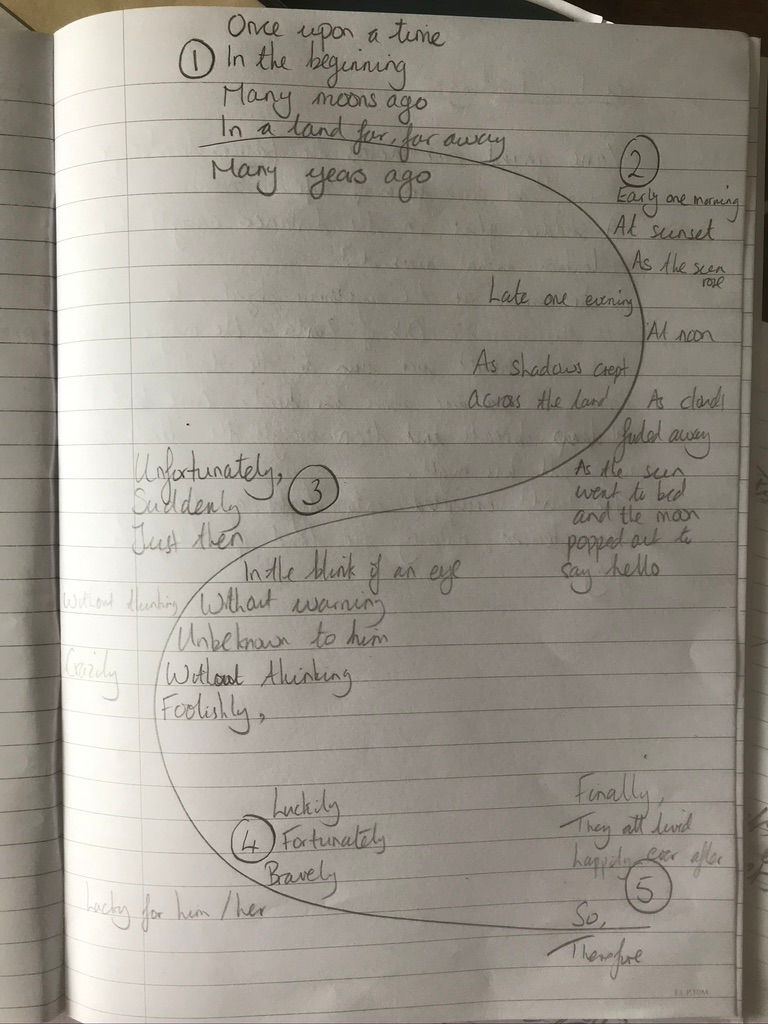 Once upon a time
① In the beginning
Many moons ago
In a land far, far away
Many years ago
②
Early one morning
At sunset
As the sun
rose
Late one evening
At noon
As shadows crept
across the land
As clouds
faded away
As the sun
went to bed
and the moon
popped out to
say hello
③
Unfortunately,
Suddenly
Just then
In the blink of an eye
Without thinking
Without warning
Unbeknown to him
Crazily
Without thinking
Foolishly,
Luckily
④ Fortunately
Bravely
Lucky for him/her
Finally,
They all livid
happily ever after
⑤
So,
Therefore